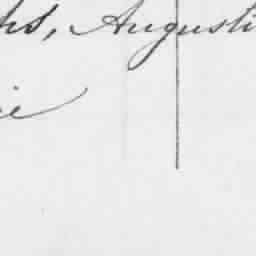 hs, Augusti
ie